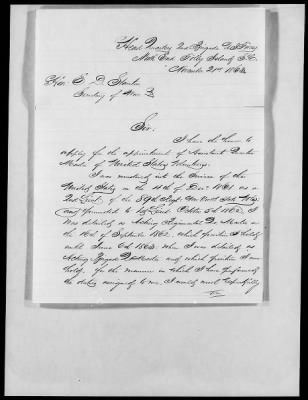 Head Quarters 2nd Brigade U.S. Forces
North End Folly Island, S.C.
November 21st 1863
Hon. E. D. Stanton
Secretary of War
Sir.
I have the honor to
apply for the appointment of Assistant Quarter
Master of United States Volunteers.
I was mustered into the service of the
United States on the 11th of Decr 1861 as a
2nd Lieut. of the 39th Regt.
and promoted to 1st Lieut October 5th 1862,
was detailed as Acting Regimental Qr Master on
the 14th of September 1862, which position I held
until June 6th 1863 when I was detailed as
Acting Brigade Qr Master and which position I now
hold, for the manner in which I have performed
the duties assigned to me, I would most respectfully